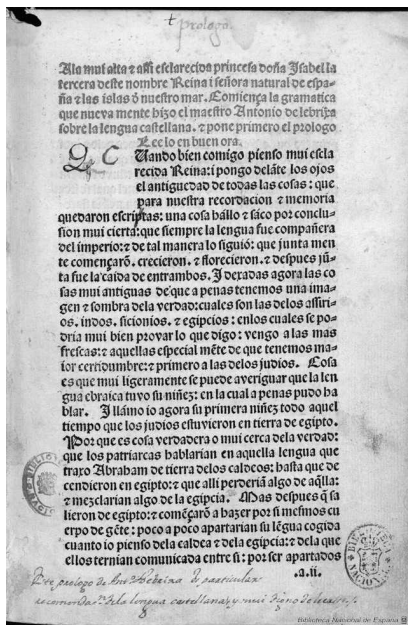 prologo.
A la mui alta ⁊ assi esclarecida princesa doña Isabel la
tercera deste nombre Reina i señora natural de espa-
ña ⁊ las islas đ nuestro mar. Comiença la gramatica
que nueva mente hizo el maestro Antonio de lebrixa
sobre la lengua castellana. ⁊ pone primero el prologo
Lee lo en buen ora.
CUando bien comigo pienso mui escla
recida Reina: i pongo delãte los ojos
el antiguedad de todas las cosas: que
para nuestra recordacion ⁊ memoria
quedaron escriptas: una cosa hállo ⁊ sáco por conclu-
sion mui cierta: que siempre la lengua fue compañera
del imperio: ⁊ de tal manera lo siguió: que junta men
te començarõ. crecieron. ⁊ florecieron. ⁊ despues jũ-
ta fue la caida de entrambos. I dexadas agora las co
sas mui antiguas de que a penas tenemos una ima-
gen ⁊ sombra dela verdad: cuales son las delos assirios.
indos. sicionios. ⁊ egipcios: enlos cuales se po-
dria mui bien provar lo que digo: vengo a las mas
frescas: ⁊ aquellas especial mẽte de que tenemos ma-
ior certidumbre: ⁊ primero a las delos judios. Cosa
es que mui ligeramente se puede averiguar que la len
gua ebraica tuvo su niñez: en la cual a penas pudo ha
blar. I llámo io agora su primera niñez todo aquel
tiempo que los judios estuvieron en tierra de egipto.
Por que es cosa verdadera o mui cerca dela verdad:
que los patriarcas hablarian en aquella lengua que
traxo Abraham de tierra delos caldeos: hasta que de
cendieron en egipto: ⁊ que alli perderiã algo de aq̃lla:
⁊ mezclarian algo de la egipcia. Mas despues q̃ sa
lieron de egipto: ⁊ comẽçarõ a hazer por si mesmos cu
erpo de gẽte: poco a poco apartarian su lẽgua cogida
cuanto io pienso dela caldea ⁊ dela egipcia: ⁊ dela que
ellos ternian comunicada entre si: por ser apartados
.a.ii.
Este prologo de
de la lengua castellana, y mui digno de
Biblioteca Nacional de España